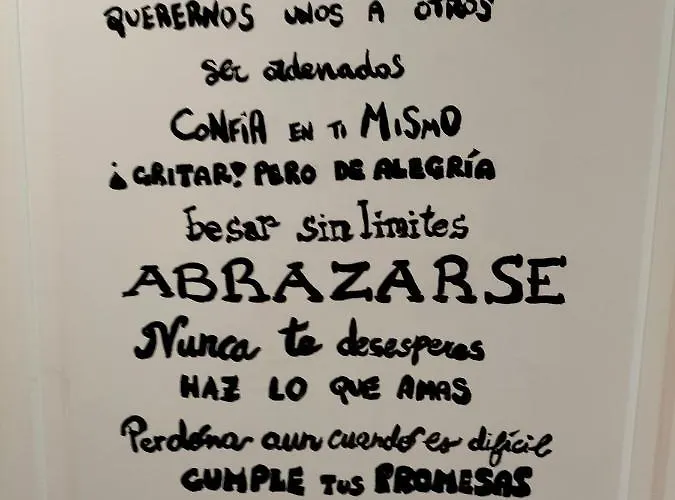 QUERERNOS UNOS A OTROS
ser ordenados
CONFIA EN TI MISMO
¡GRITAR! PERO DE ALEGRÍA
besar sin limites
ABRAZARSE
Nunca te desesperes
HAZ LO QUE AMAS
Perdona aun cuando es difícil
CUMPLE TUS PROMESAS